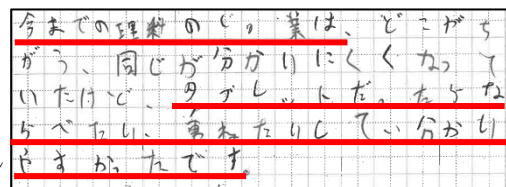 今までの理科のじゅ業は、どこがち
がう、同じが分かりにくくなって
いたけど、タブレットだったらな
らべたり、重ねたりしてい分かり
やすかったです。